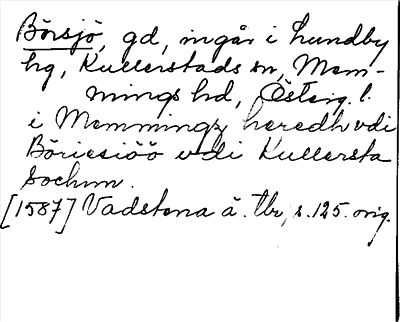 Börsjö, gd, ingår i Lundby
hg, Kullerstads sn, Mem-
mings hd, Österg. l.
i Memmingz heredh vdi
Böriesiöö vdi Kullersta
Sochnn.
[1587] Vadstena ä. tbr, s. 125. orig.